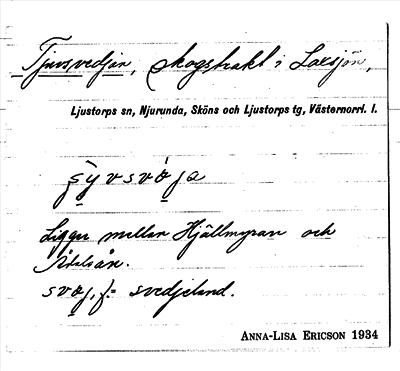 Tjuvsvedjan, skogstrakt i Laxsjön,
Ljustorps sn, Njurunda, Sköns och Ljustorps tg, Västernorrl. l.
ʃy̱vsvo̱ja
Ligger mellan Hjällmyran och
Ådalsån.
svo̱j, f. = svedjeland.
ANNA-LISA ERICSON 1934